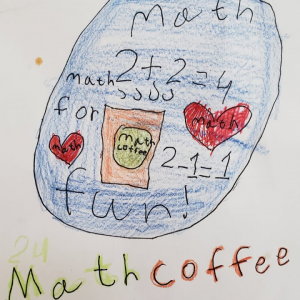 Math
math 2+2=4
for
math
coffee
math
math
2-1=1
fun!
24
Math coffee